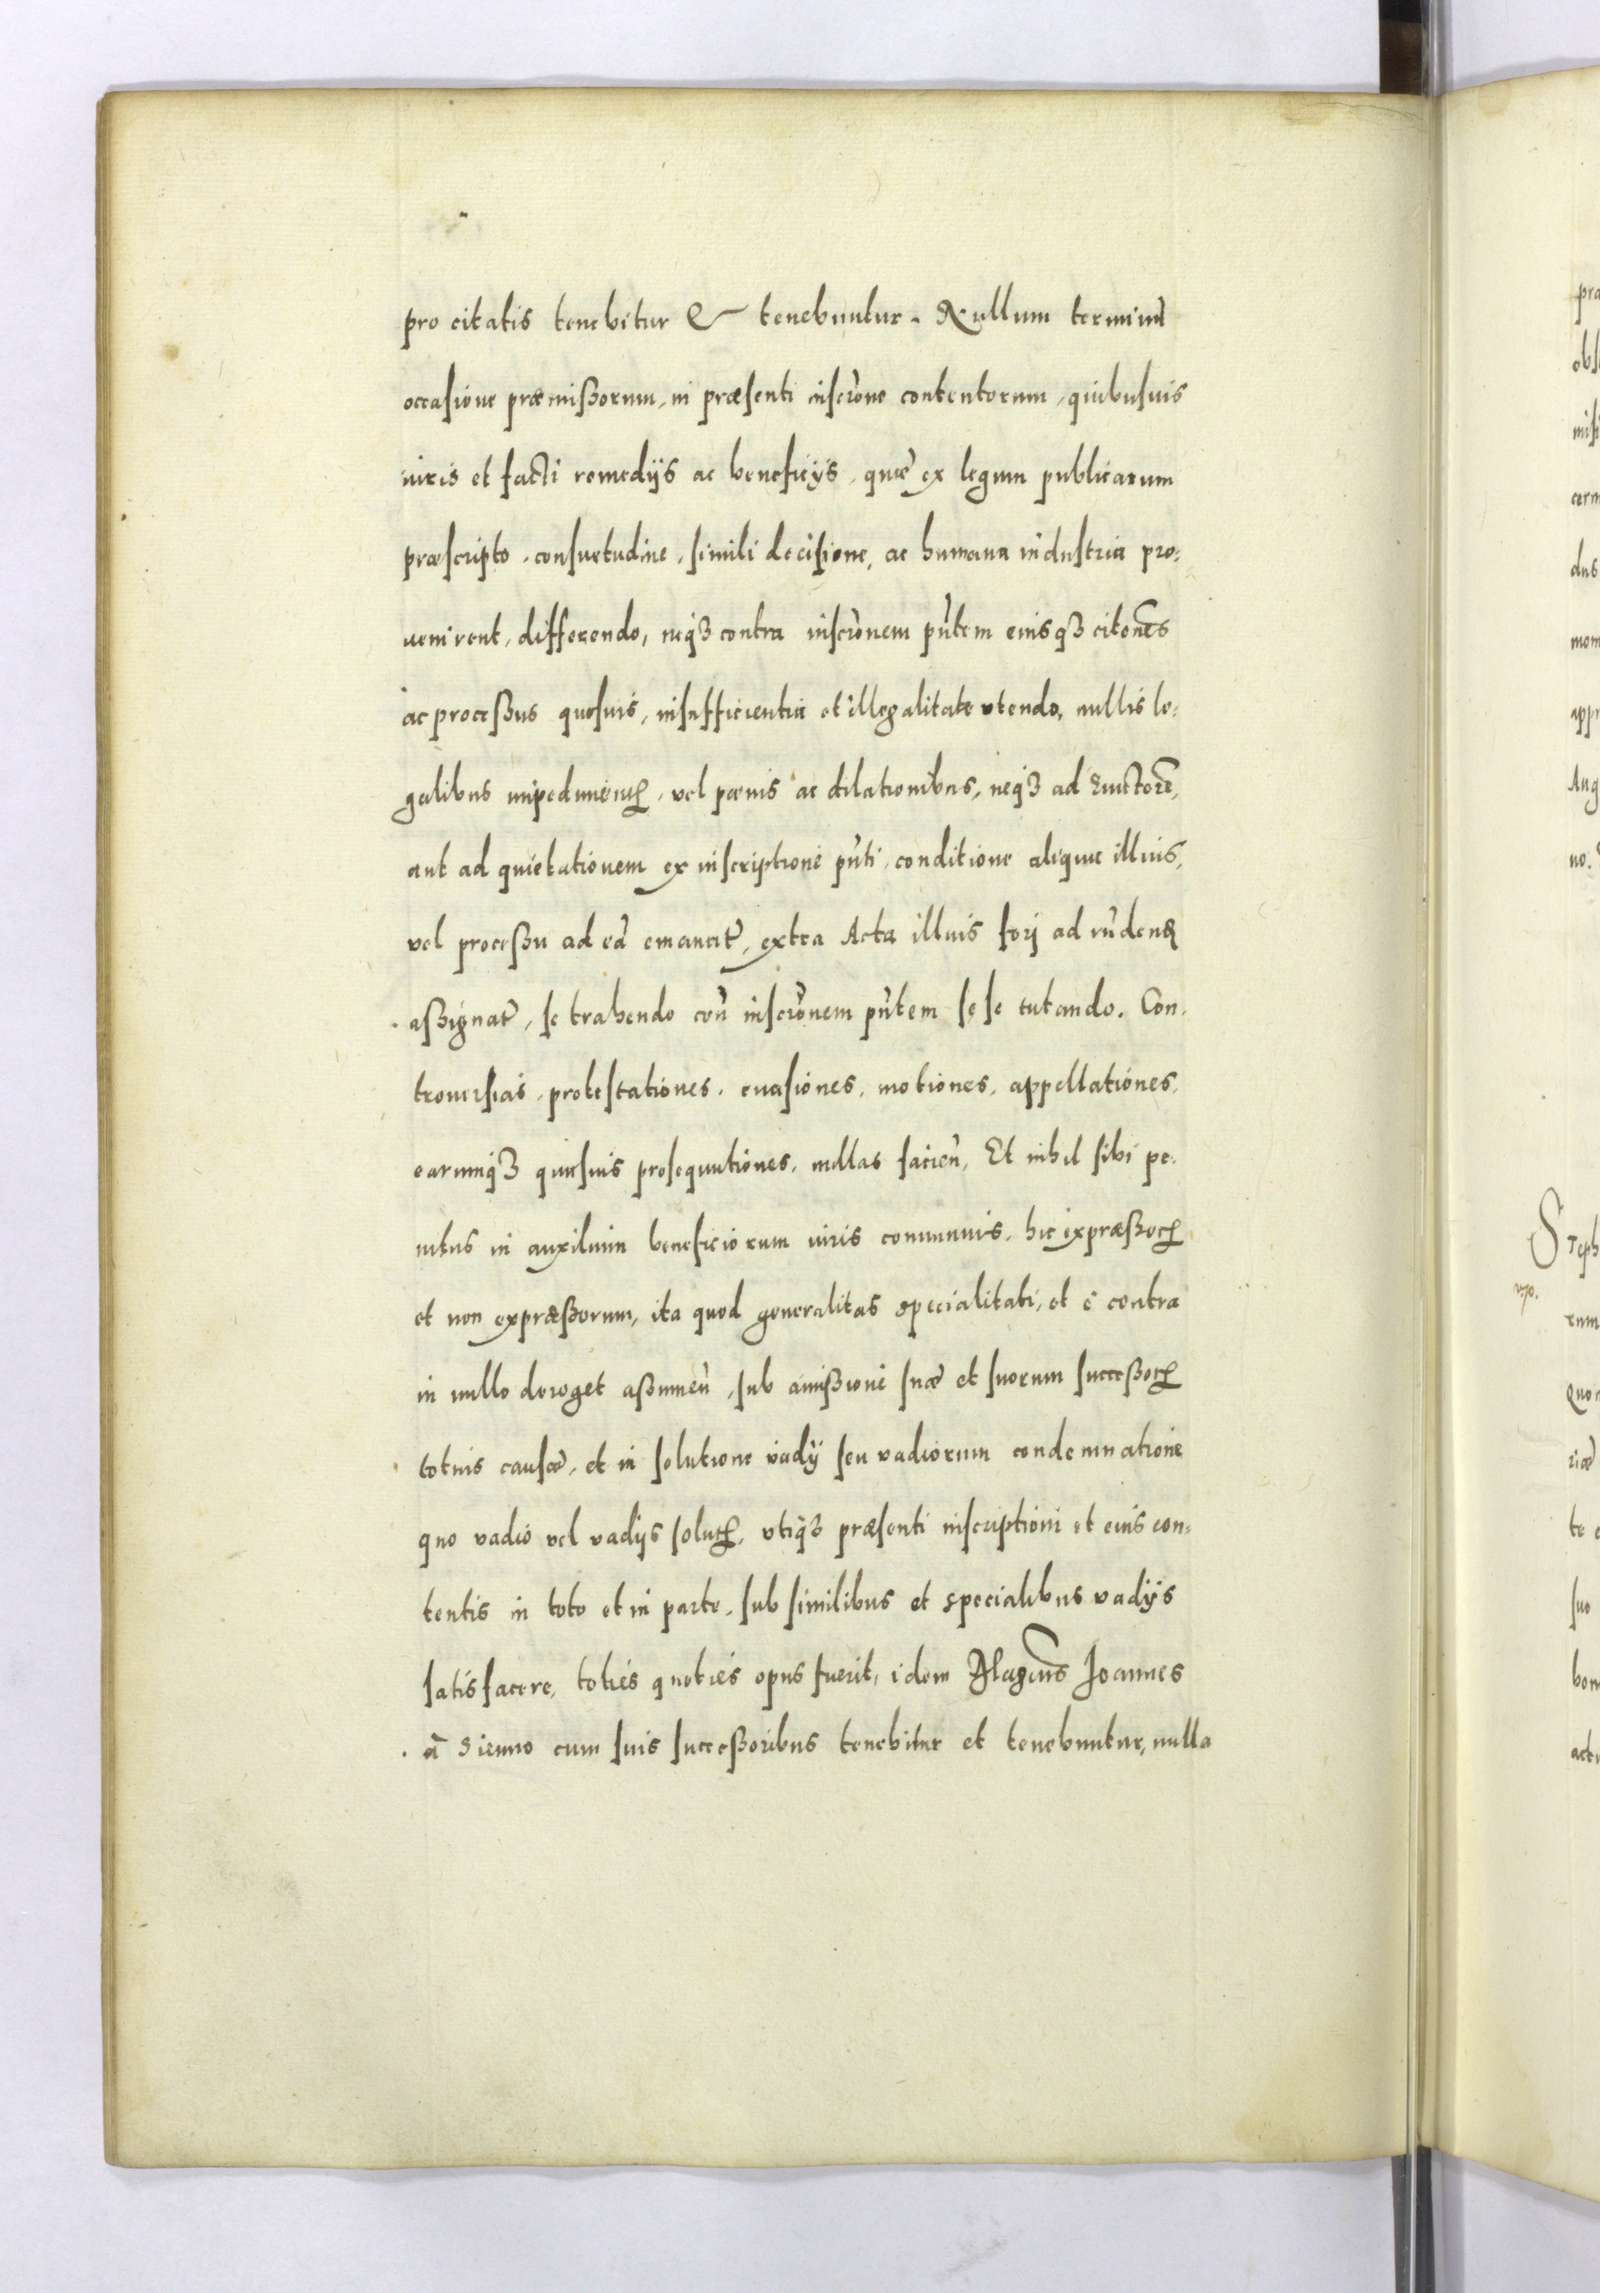 pro citatis tenebitur & tenebuntur. Nullum terminũ
occasione præmißorum, in præsenti inscr̃one contentorum, quibusuis
iuris et facti remedijs ac beneficijs, quæ ex legum publicarum
præscripto, consuetudine, simili decisione, ac humana industria pro:
uenirent, differendo, neqꝫ contra inscr̃onem pñtem eiusqꝫ citẽones
ac proceßus quosuis, insufficientia et illegalitate vtendo, nullis le:
galibus impedimentꝭ, vel pœnis ac dilationibus, neqꝫ ad Euictorẽ,
aut ad quietationem ex inscriptione pñti, conditione aliqua illius,
vel proceßu ad eã emanat̃, extra Acta illius fori ad rñdenđ
aßignat̃, se trahendo con̄ inscr̃onem pñtem sese tutando. Con:
trouersias, protestationes, euasiones, motiones, appellationes,
earumqꝫ quasuis prosequutiones, nullas facieñ, Et nihil sibi pe:
nitus in auxilium beneficiorum iuris communis, hic expræßorꝝ
et non expræßorum, ita quod generalitas specialitati, et è contra
in nullo deroget aßumeñ, sub amißione suæ et suorum succeßorꝝ
totius causæ, et in solutione vadij seu vadiorum condemnatione
quo vadio vel vadijs solutꝭ, vtiqꝫ præsenti inscriptioni et eius con:
tentis in toto et in parte, sub similibus et specialibus vadijs
satisfacere, toties quoties opus fuerit, idem Magcũs Joannes
à Sienno cum suis succeßoribus tenebitur et tenebuntur, nulla